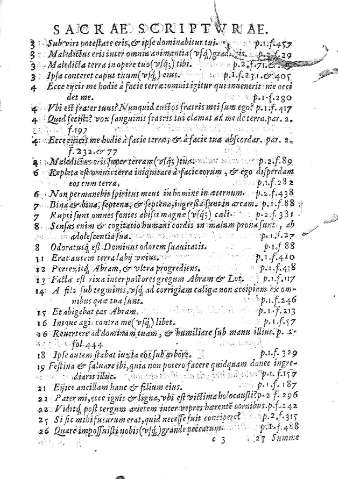 SACRAE SCRIPTVRAE.
3 Sub viri potestate eris, & ipse dominabitur tui. p.1.f.457
3 Maledictus eris inter omnia animantia (vsq;)
3 Maledicta terra in opere tuo (vsq;) tibi. p.2.f.71.
3 Ipsa conteret caput tuum (vsq;) eius. p.1.f.231. & 405
4 Ecce ejicis me hodie à facie terrae: omnis igitur qui invenerit me occi
det me. p.1.f.230
4 Vbi est frater tuus? Nunquid custos fratris mei sum ego? p.1.f.437
4 Quid fecisti? vox sanguinis fratris tui clamat ad me de terra. par. 2.
f.197
4 Ecce ejicis me hodie à facie terrae; & à facie tua abscondar. par. 2.
f.232. & 77
4 Maledictus eris super terram (vsq;) tuus. p.2.f.89
6 Repleta est vniversa terra iniquitate à facie eorum, & ego disperdam
eos cum terra. p.1.f.282
6 Non permanebit spiritus meus in homine in aeternum. p.2.f.438
7 Bina & bina, septena, & septena, ingressa sunt in arcam. p.1.f.88
7 Rupti sunt omnes fontes abyssi magnae (vsq;) caeli. p.2.f.331
8 Sensus enim & cogitatio humani cordis in malum prona sunt, ab
adolescentia sua. p.1.f.27
8 Odoratusq; est Dominus odorem suavitatis. p.1.f.88
11 Erat autem terra labij vnius. p.1.f.410
12 Perrexitq; Abram, & vltra progrediens. p.2.f.438
13 Facta est rixa inter pastores gregum Abram & Lot. p.1.f.117
14 A filo subtegminis, vsq; ad corrigiam caligae non accipiam ex om-
nibus quae tua sunt. p.1.f.246
15 Et abigebat eas Abram. p.1.f.213
16 Inique agis contra me (vsq;) libet. p.1.f.57
16 Revertere ad dominam tuam, & humiliare sub manu illius. p.1.
fol. 444
18 Ipse autem stabat iuxta eos sub arbore. p.1.f.329
19 Festina & salvare ibi, quia non potero facere quidquam donec ingre-
diaris illuc. p.1.f.157
21 Ejice ancillam hanc & filium eius. p.1.f.187
22 Pater mi, ecce ignis & ligna, vbi est victima holocausti? p.2.f.296
22 Viditq; post tergum arietem inter vepres haerentem cornibus. p.f.242
25 Si sic mihi futurum erat, quid necesse fuit concipere? p.2.f.315
26 Quare imposuisti nobis (vsq;) grande peccatum. p.1.f.
c 3 25 Summe